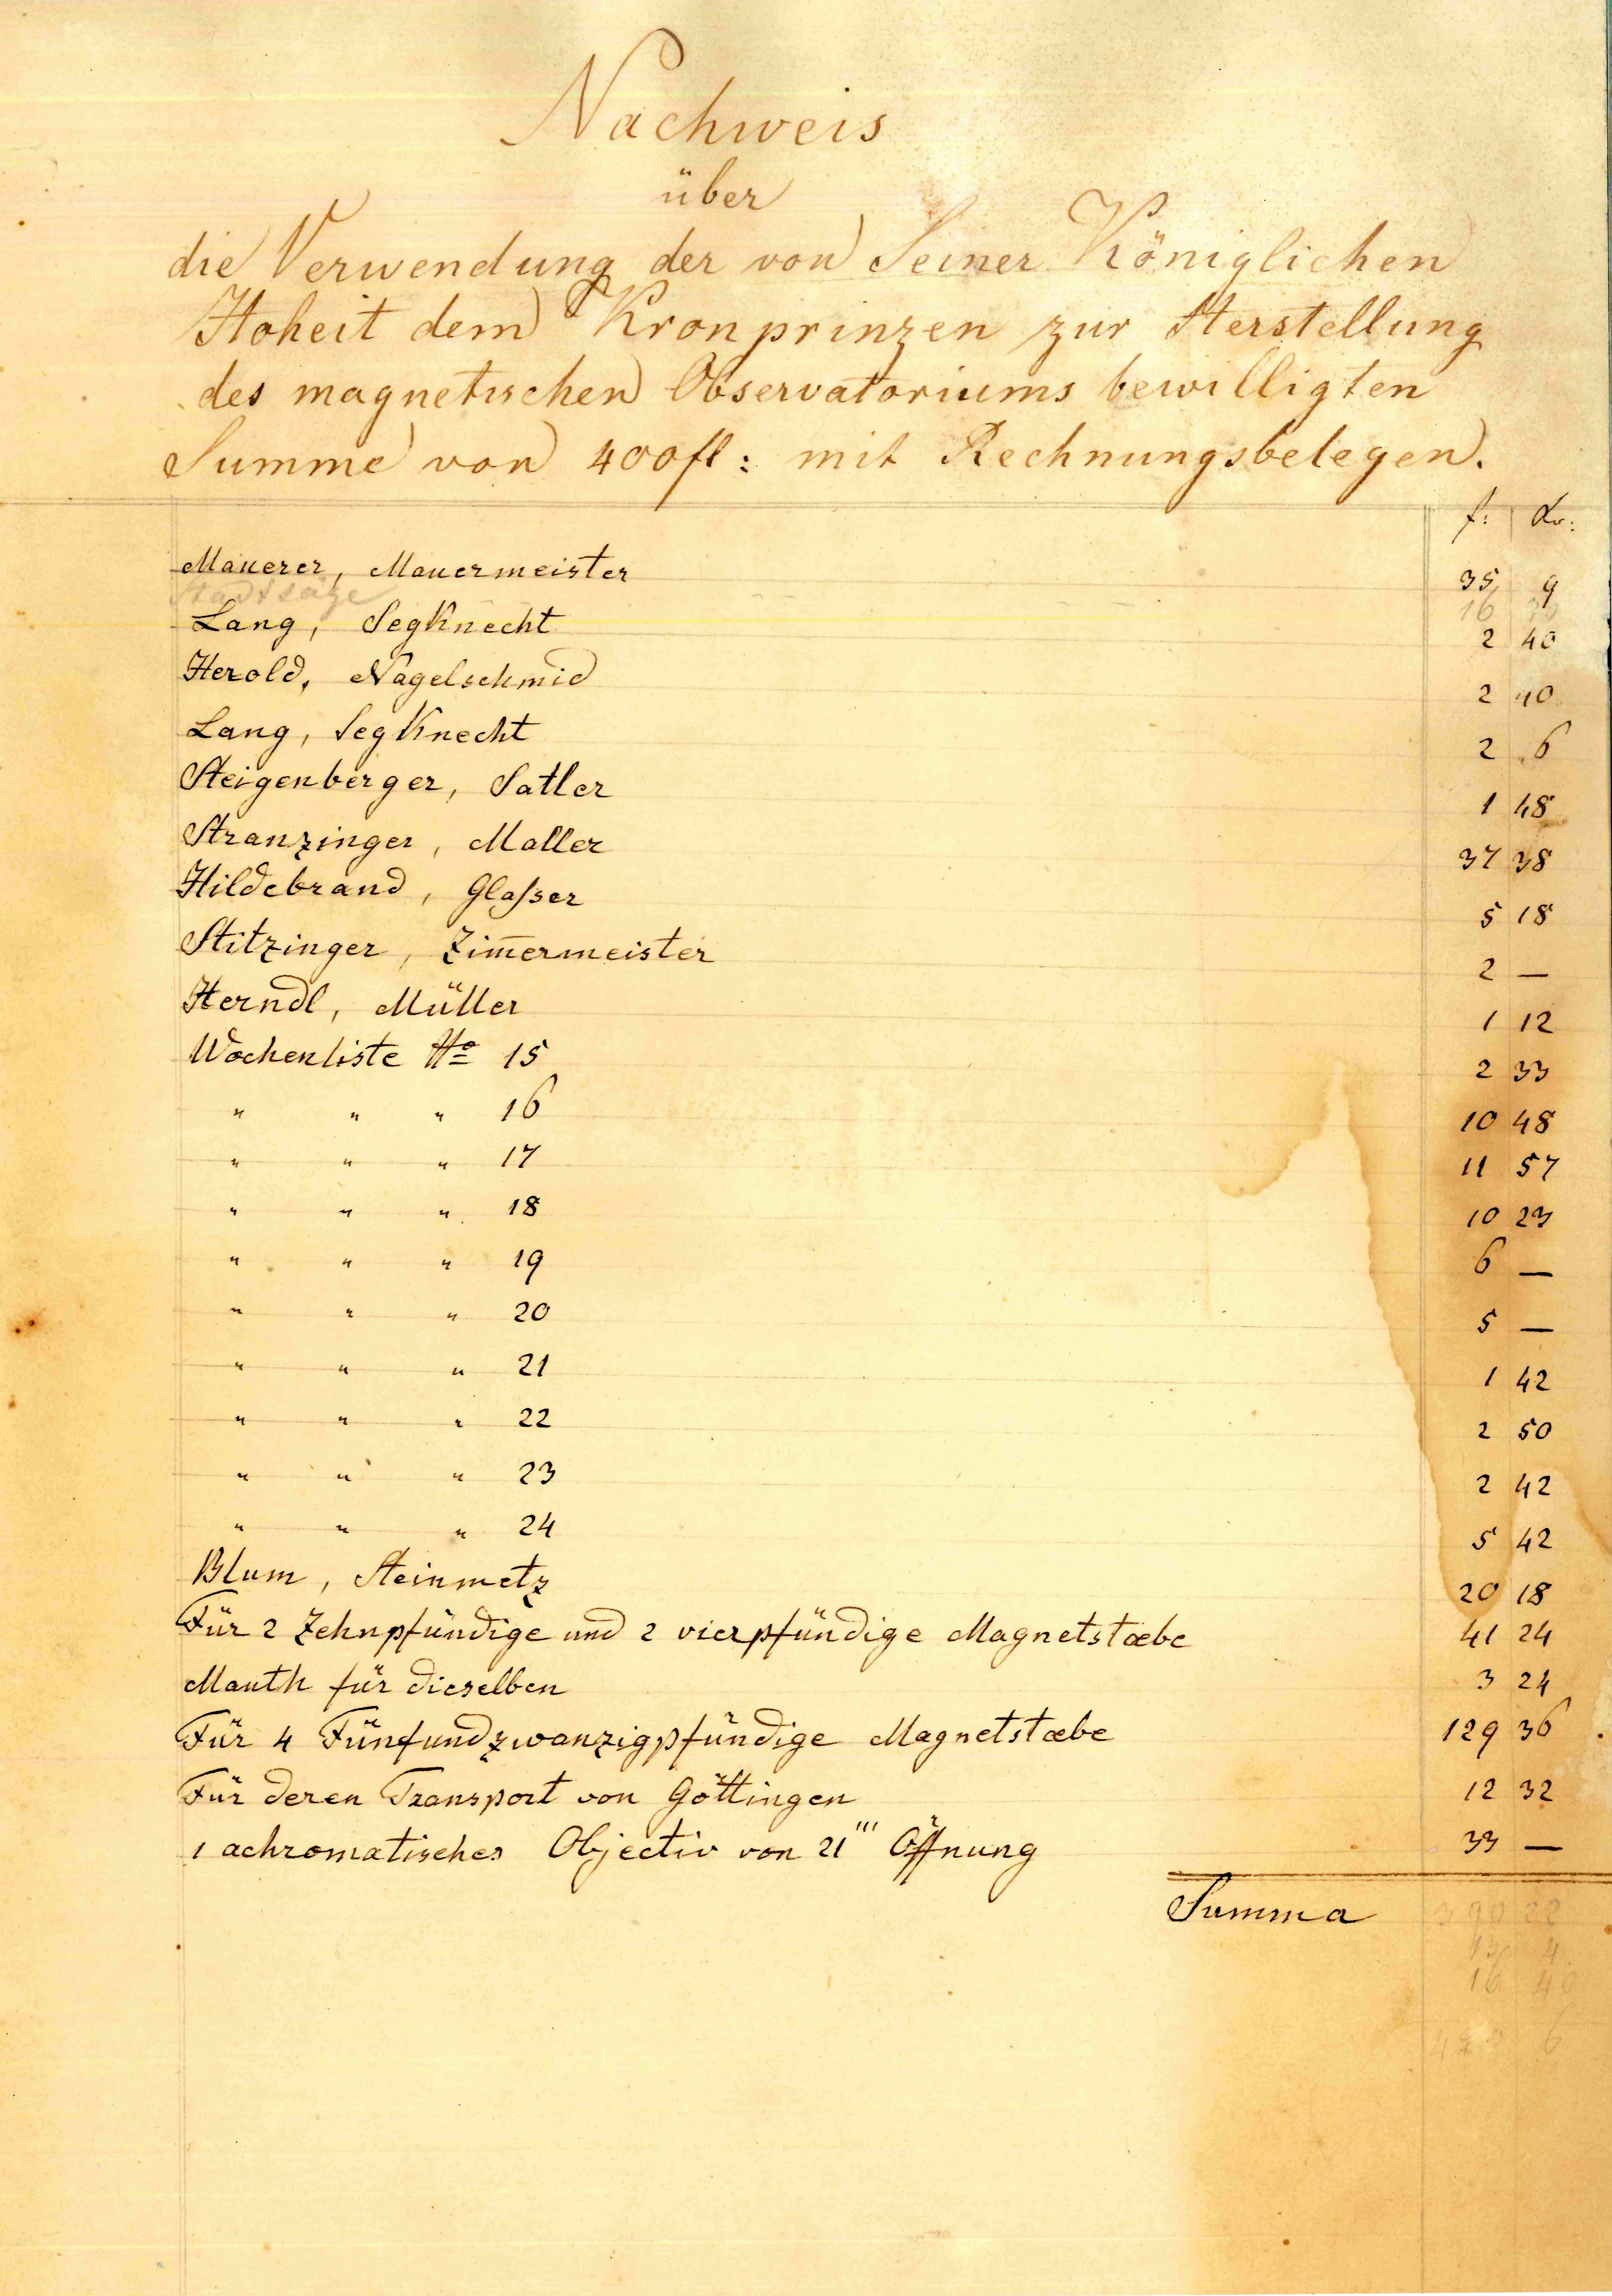 Nachweis
über
die Verwendung der von Seiner Königlichen
Hoheit dem Kronprinzen zur Herstellung
des magnetischen Observatoriums bewilligten
Summe von 400fl: mit Rechnungsbelegen.
f: kr:
Mauerer, Mauermeister 35 9
Stadtsäge 16
Lang, Segknecht 2 40
Herold, Nagelschmid 2 40
Lang, Segknecht 2 6
Steigenberger, Satler 1 48
Stranzinger, Maller 37 38
Hildebrand, Glaſser 5 18
Stitzinger, Zim̅ermeister 2 —
Herndl, Müller 1 12
Wochenliste No 15 2 33
" " " 16 10 48
" " " 17 11 57
" " " 18 10 23
" " " 19 6 —
" " " 20 5 —
" " " 21 1 42
" " " 22 2 50
" " " 23 2 42
" " " 24 5 42
Blum, Steinmetz 20 18
Für 2 Zehnpfündige und 2 vierpfündige Magnetstæbe 41 24
Mauth für dieselben 3 24
Für 4 Fünfundzwanzigpfündige Magnetstæbe 129 36
Für deren Transport von Göttingen 12 32
1 achromatisches Objectiv von 21''' Öffnung 33 —
Summa 390 22
4
16 40
6